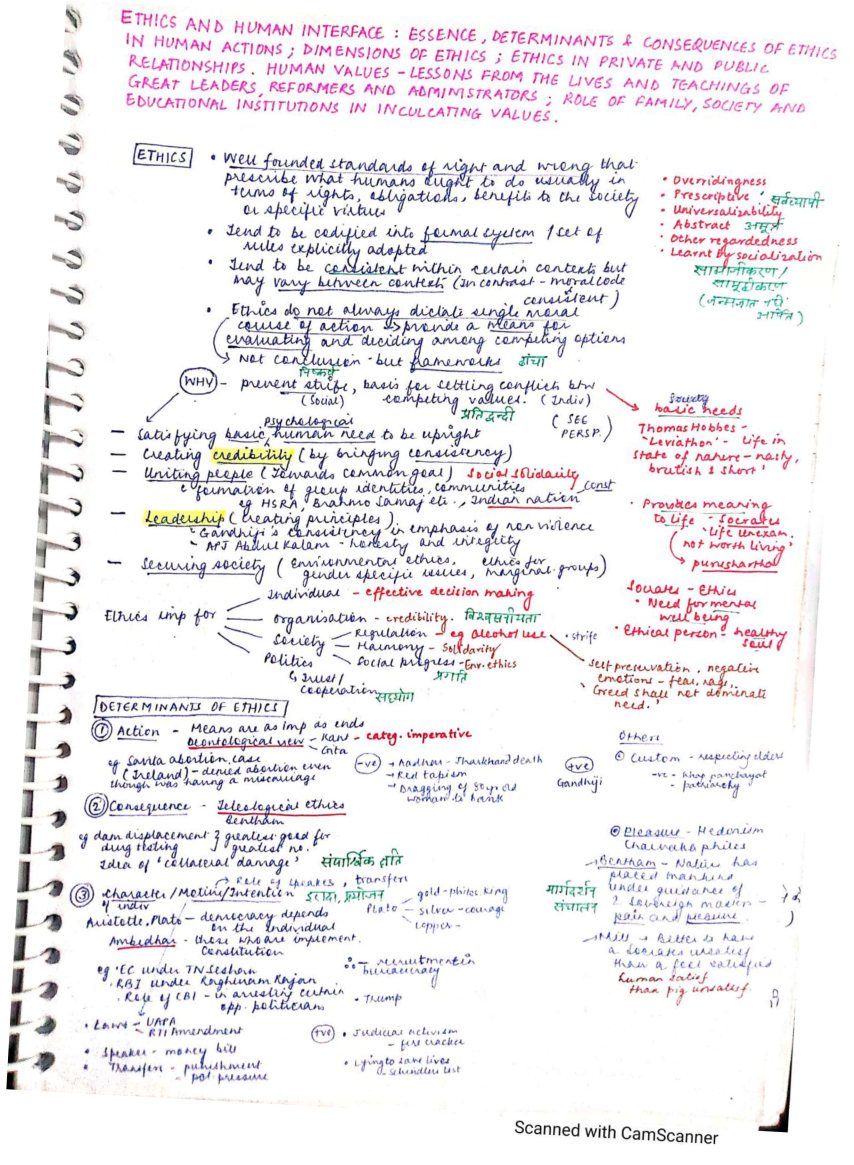 ETHICS AND HUMAN INTERFACE : ESSENCE, DETERMINANTS & CONSEQUENCES OF ETHICS
IN HUMAN ACTIONS ; DIMENSIONS OF ETHICS ; ETHICS IN PRIVATE AND PUBLIC
RELATIONSHIPS. HUMAN VALUES - LESSONS FROM THE LIVES AND TEACHINGS OF
GREAT LEADERS, REFORMERS AND ADMINISTRATORS ; ROLE OF FAMILY, SOCIETY AND
EDUCATIONAL INSTITUTIONS IN INCULCATING VALUES.
ETHICS
• Well founded standards of right and wrong that
prescribe what humans ought to do usually in
terms of rights, obligations, benefits to the society
or specific virtues
• Tend to be codified into formal system / set of
rules explicitly adopted
• Tend to be consistent within certain contexts but
may vary between contexts (In contrast - moral code
consistent)
• Ethics do not always dictate single moral
course of action → provide a means for
evaluating and deciding among competing options
→ Not conclusion - but frameworks ढांचा
निष्कर्ष
• Overridingness
• Prescriptive • सर्वव्यापी
• Universalizability
• Abstract अमूर्त
• Other regardedness
• Learnt by socialization
सामाजीकरण /
सामूहीकरण
WHY - prevent strife, basis for settling conflicts btw
(Social) competing values. (Indiv)
प्रतिद्वन्दी
(SEE
PERSP.)
Psychological
- Satisfying basic human need to be upright
- Creating credibility (by bringing consistency)
- Uniting people (Towards common goal) Social Solidarity
formation of group identities, communities const
eg HSRA, Brahmo Samaj etc., Indian nation
- Leadership (creating principles)
- Gandhiji's consistency in emphasis of non violence
- APJ Abdul Kalam - honesty and integrity
- Securing society (Environmental ethics, ethics for
gender specific issues, marginal. groups)
Society
basic needs
Thomas Hobbes -
'Leviathon' - life in
state of nature - nasty,
brutish & short'
• Provides meaning
to life - Socrates
'life unexam.
not worth living'
→ purushartha
Socrates - Ethics
• Need for mental
well being
• Ethical person - healthy
soul
Ethics imp for
Individual - effective decision making
organisation - credibility. विश्वसनीयता
Society
Regulation - eg alcohol use • strife
Harmony - Solidarity
Social progress - Env. ethics
प्रगति
Politics
↳ Trust /
cooperation सहयोग
Self preservation, negative
emotions - fear, rage,
'Greed shall not dominate
need.'
DETERMINANTS OF ETHICS
① Action - Means are as imp as ends
Deontological view - Kant - categ. imperative
- Gita
eg Savita abortion case
(Ireland) - denied abortion even
though was having a miscarriage
-ve
→ Aadhar - Jharkhand death
→ Red tapism
→ Dragging of 80 yr old
woman to bank
+ve
Gandhiji
Others
Custom - respecting elders
-ve - khap panchayat
- patriarchy
② Consequence - Teleological ethics
Bentham
eg dam displacement } greatest good for
drug testing } greatest no.
Idea of 'collateral damage' संपार्श्विक क्षति
Pleasure - Hedonism
Charvaka philos
→ Bentham - Nature has
placed mankind
under guidance of
2 sovereign masters -
pain and pleasure.
मार्गदर्शन
संचालन
→ Mill → Better to be
a Socrates unsatisf
than a fool satisfied
human satisf
than pig unsatisf.
→ Role of speaker, transfers
③ Character / Motive / Intention इरादा, प्रयोजन
of indiv
Aristotle, Plato - democracy depends
on the individual
Plato
gold - philos. king
silver - courage
copper -
Ambedkar - those who are implement.
Constitution
∴ - recruitment in
bureaucracy
eg • EC under TN Seshan
• RBI under Raghuram Rajan
• Role of CBI - in arresting certain
opp. politicians
• Trump
• Laws → UAPA
RTI Amendment
• Speaker - money bill
• Transfers - punishment
- pol. pressure
+ve
• Judicial activism
- fire cracker
• Lying to save lives
- Schindlers List
Scanned with CamScanner